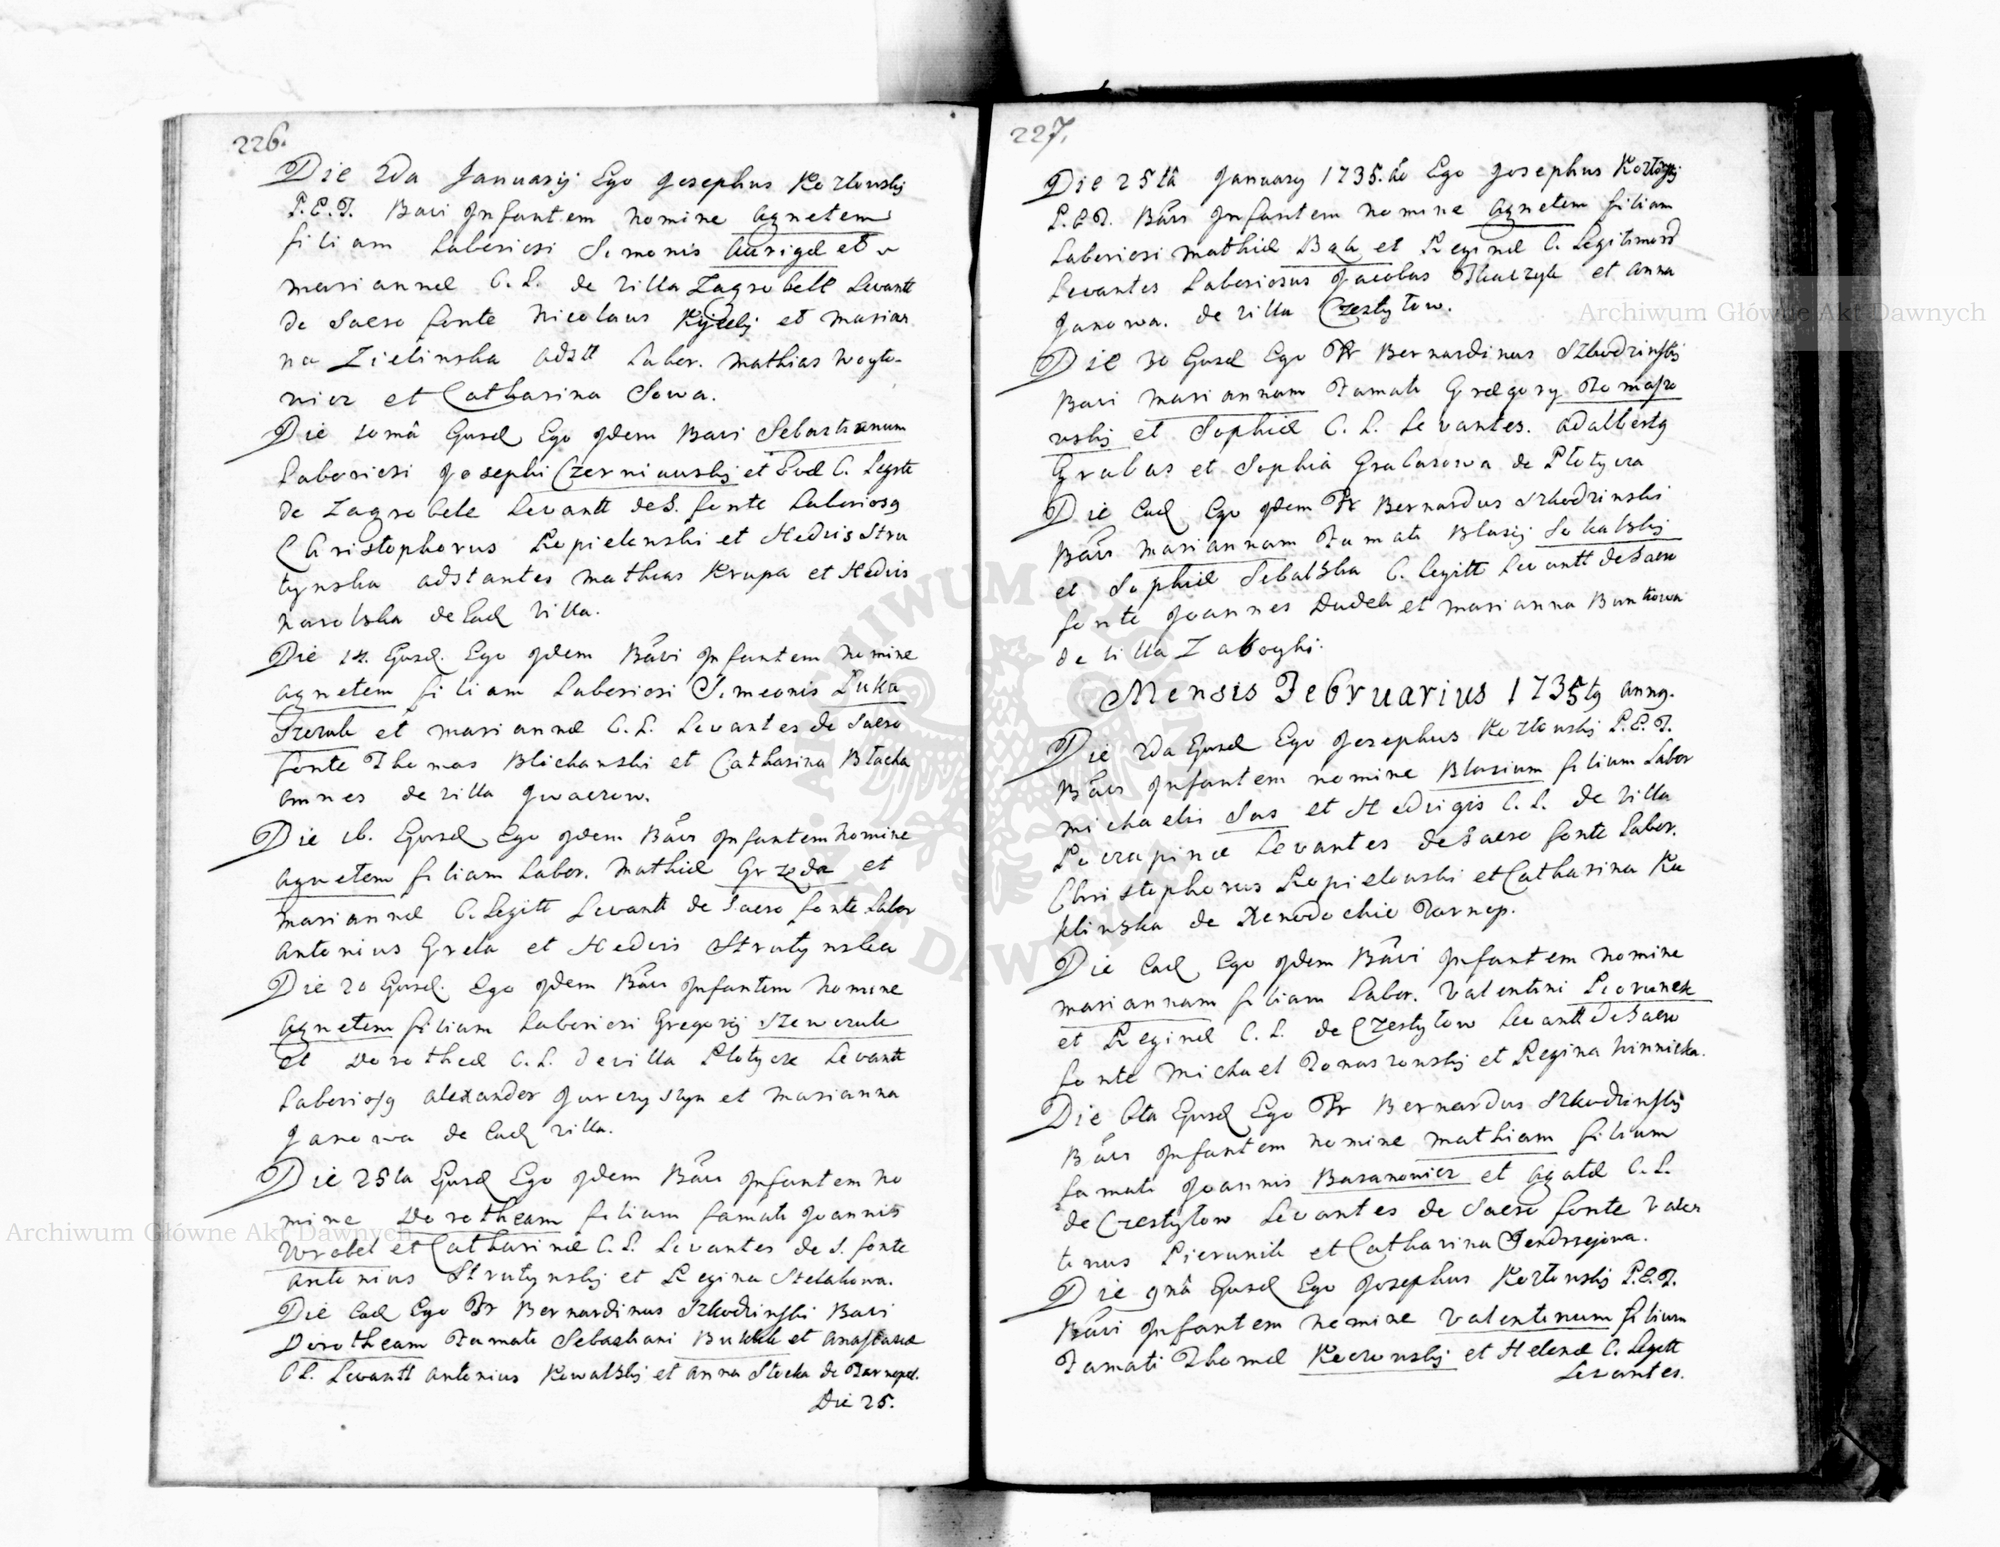 226.
Die 2da Januarij Ego Josephus Kozłowskj
P.C.T. Bavi Infantem nomine Agnetem
filiam Laboriosi Simonis Aurigæ et
Mariannæ C. L. de Villa Zagrobelle Levantt
de Sacro fonte Nicolaus et Marian
na Zielinska adstt Labor. Mathias Woyto-
wicz et Catharina Sowa.
Die 10mâ Ejusd Ego Idem Bavi Sebastianum
Laboriosi Josephi Czerniawskj et Evæ C. Legitt
de Zagrobele Levantt de S. fonte Laboriosg
Christophorus Kopielewski et Hedvis Stru
tynska adstantes Mathias Krupa et Hedvis
Karolska de Ead Villa.
Die 14. Ejusd. Ego Idem Bavi Infantem nomine
Agnetem filiam Laboriosi Simeonis Łuka
et Mariannæ C. L. Levantes de Sacro
fonte Thomas Blichanski et Catharina Błacha
omnes de Villa Jwaczow.
Die 16. Ejusd Ego Idem Bavi Infantem Nomine
Agnetem filiam Labor. Mathiæ Grzęda et
Mariannæ C. Legitt Levantt de Sacro fonte Labor
Antonius Grela et Hedvis Strutynska
Die 20 Ejusd. Ego Idem Bavi Infantem Nomine
Agnetem filiam Laboriosi Gregorij Szewczuk
et Dorotheæ C. L. de Villa Płotycze Levantt
Laboriosg Alexander Jurczyszyn et Marianna
Janowa de Ead Villa.
Die 25ta Ejusd Ego Idem Bavi Infantem No
mine Dorotheam filiam famati Joannis
Wrobel et Catharinæ C. L. Levantes de S. fonte
Antonius Strutynskj et Regina Stelakowa.
Die Ead Ego Fr Bernardinus Szkodzinski Bavi
Dorotheam Famati Sebastiani et Anastasiæ
C L. Levantt Antonius Kowalskj et Anna Stocka de Tarnopol.
Die 25.
227.
Die 25tâ January 1735. Ego Josephus
P.C.T. Bavi Infantem nomine Agnetem filiam
Laboriosi Mathiæ Bąk et Reginæ C. Legitimorũ
Levantes Laboriosus Jacobus Tkaczyk et Anna
Janowa. de Villa Czestyłow.
Die 30 Ejusd Ego Fr Bernardinus Szkodzinskj
Bavi Mariannam Famati Grægory Tomaszo
wskj et Sophiæ C. L. Levantes. Adalbertg
Grabas et Sophia Grabasowa de Płotycza
Die Ead Ego Idem Fr Bernardus Szkodzinski
Bavi Mariannam Famati Blasij Sokalskj
et Sophiæ Sokalska C. Legitt Levantt de Sacro
fonte Joannes Dudek et Marianna
de Villa Zaboyki.
Mensis Februarius 1735tg anng.
Die 2da Ejusd Ego Josephus Kozłowskj P.C.T.
Bavi Infantem nomine Blasium filium Labor
Michaelis Sas et Hedvigis C. L. de Villa
Levantes de Sacro fonte Labor.
Christophorus Kopielowski et Catharina Ka
plinska de Xenodochio Tarnop.
Die Ead Ego Idem Bavi Infantem nomine
Mariannam filiam Labor. Valentini
et Reginæ C. L. de Czestyłow Levantt de Sacro
fonte Michael Tomaszowskj et Regina Winnicka.
Die 6ta Ejusd Ego Fr Bernardus Szkodzinskj
Bavi Infantem nomine Mathiam filium
famati Joannis Baranowicz et Agatæ C. L.
de Czestyłow Levantes de Sacro fonte Valen
tinus Pierunik et Catharina Jendrzejowa.
Die 9nâ Ejusd Ego Josephus Kozłowskj P.C.T.
Bavi Infantem nomine Valentinum filium
Famati Thomæ Koczowskj et Helenæ C. Legitt
Levantes.